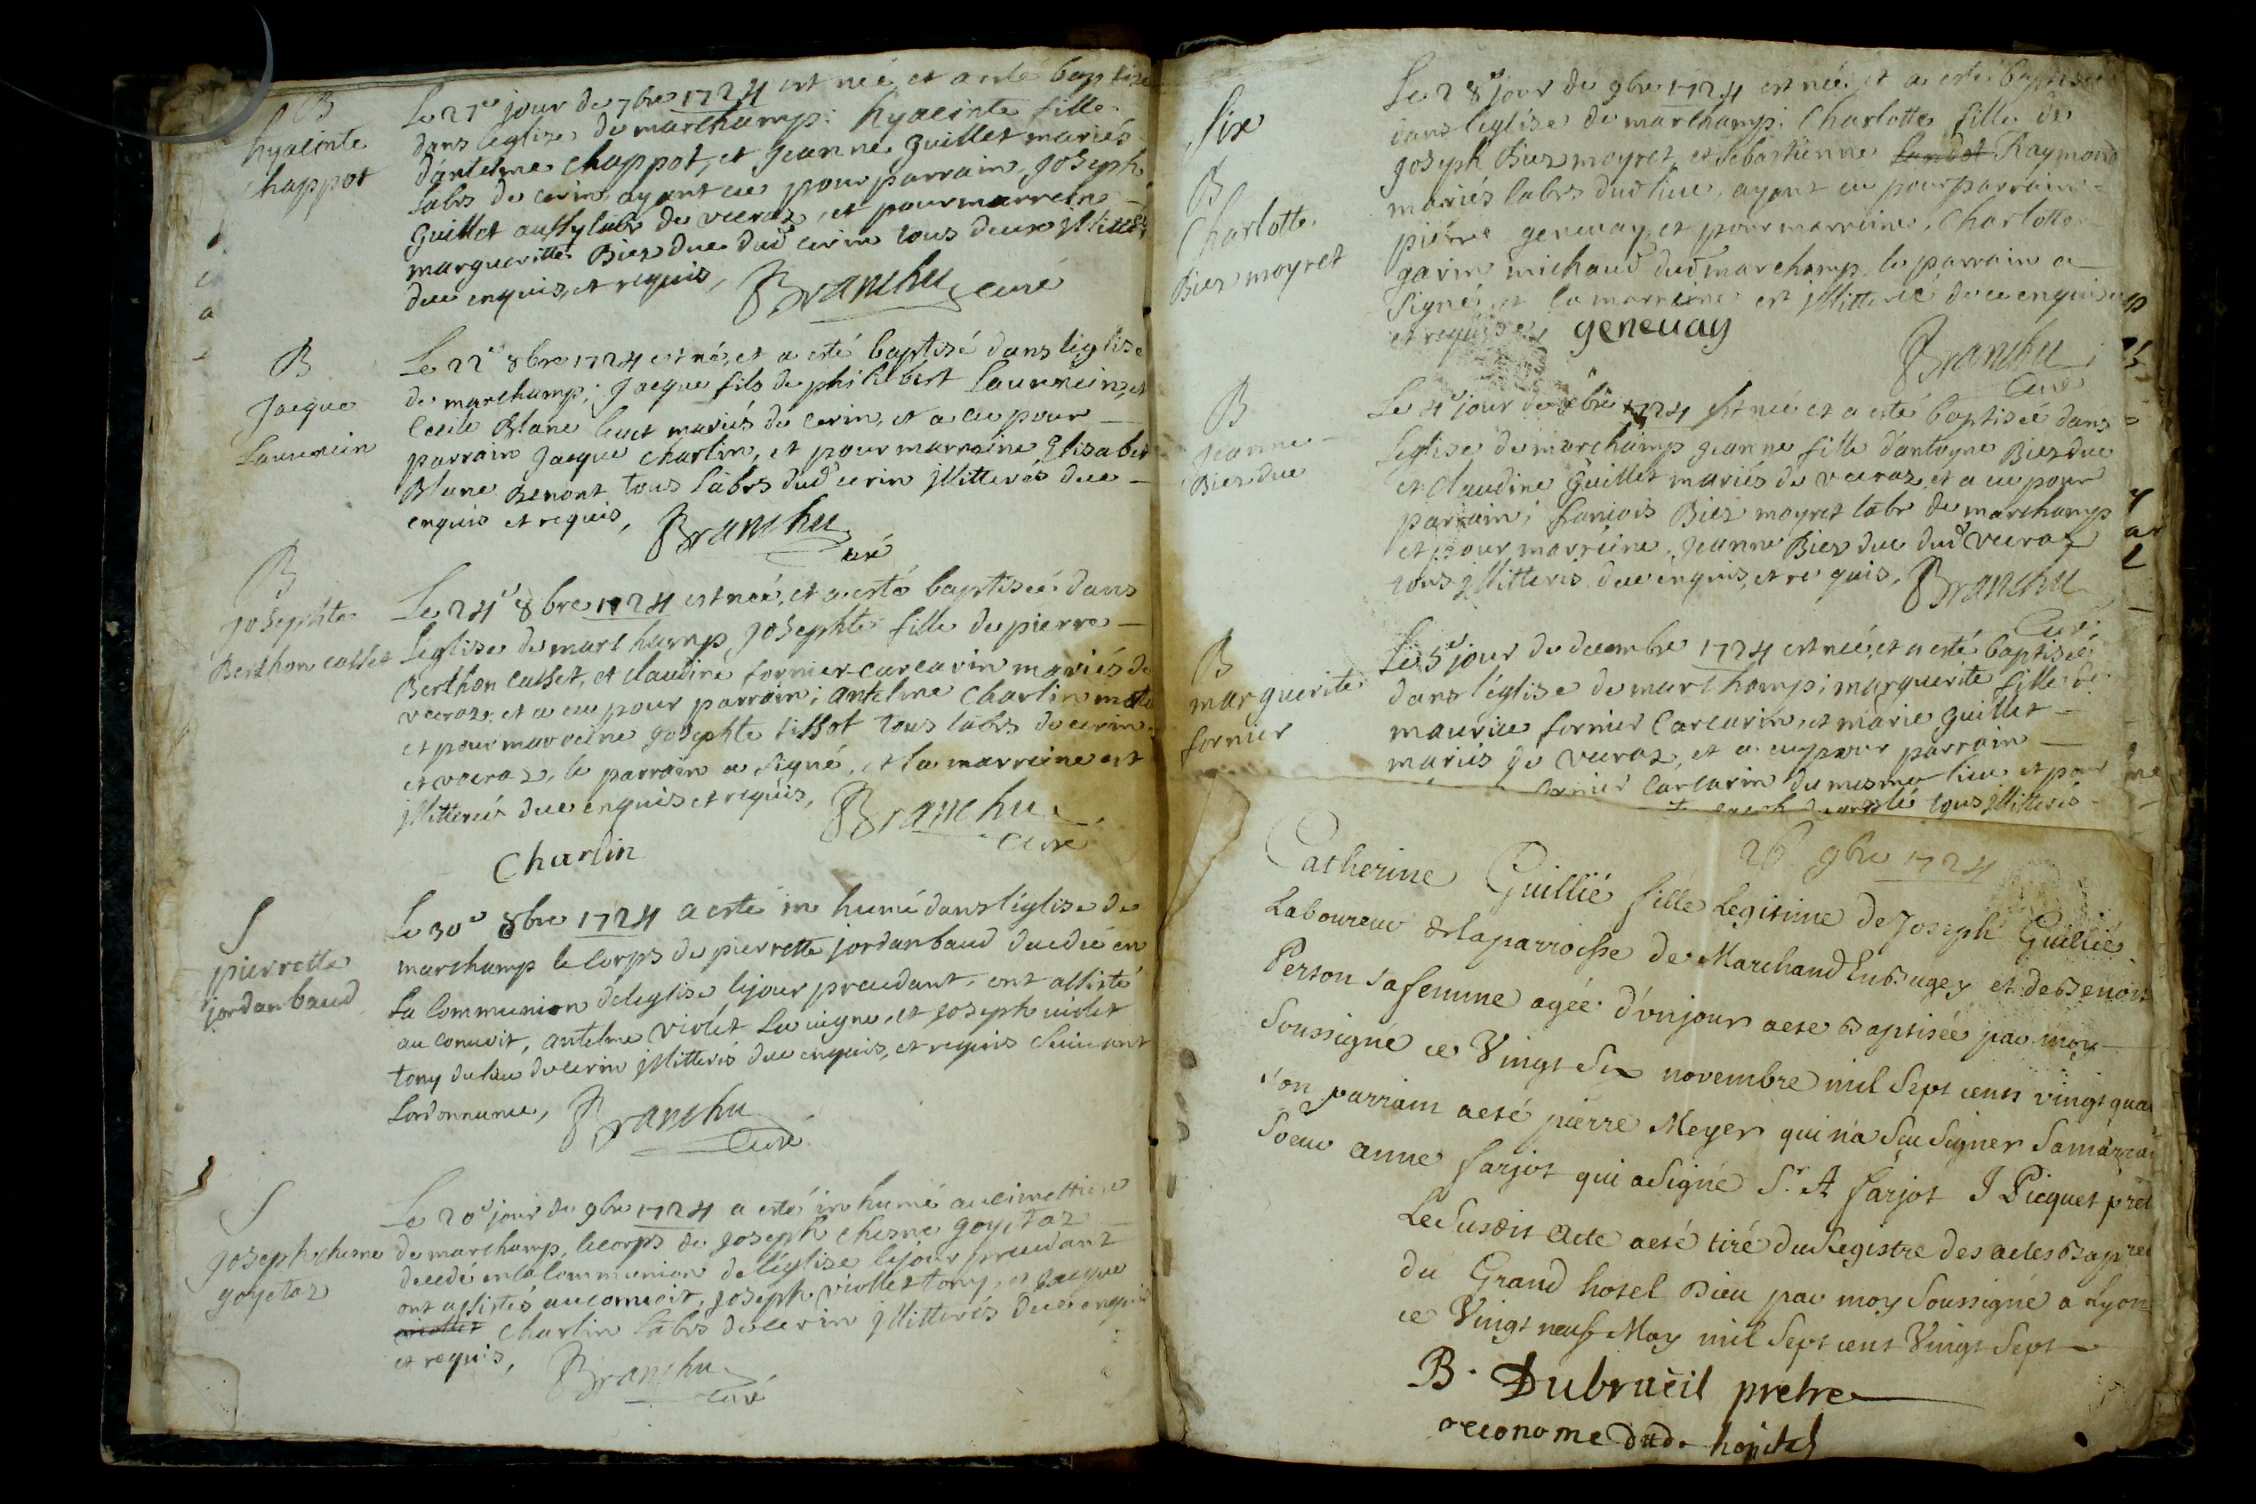 B
hyacinte
chappot
Le 27e jour de 7bre 1724 est née et a esté baptisée
dans léglise de marchamp: hyacinte fille
dantelme chappot, et jeanne guillet mariés
labrs de cerin, ayant eu pour parrain, joseph
guillot aussy labr de veeraz, et pour marreine
margueritte Biez due dud cerin tous deux jllitterés
due enquis, et requis, Branchu curé
B
jacque
Laurencin
Le 22e 8bre 1724 est né, et a esté baptisé dans léglise
de marchamp; jacque fils de philibert Laurencin, et
Cecile Blanc mariés de cerin, et a eu pour
parrain jacque charlin, et pour marraine Elisabet
Blanc Benont tous labrs dud cerin jllitterés due
enquis et requis, Branchu
curé
B
josephte
Berthon casset
Le 24e 8bre 1724 est née, et a esté baptisée dans
léglise de marchamp, josephte fille de pierre
Berthon casset, et claudine fornier carcavin mariés de
veeraz, et a eu pour parrain; antelme charlin
et pour marreine josephte tissot tous labrs de cerin
et veeraz, le parrain a signé, et la marreine est
jllitterée due enquis et requis, Branchu
curé
Charlin
S
pierrette
jordanbaud
Le 30e 8bre 1724 a esté inhumé dans léglise de
marchamp le corps de pierrette jordanbaud decedée en
La Communion de léglise le jour precedant, ont assisté
au convoit, antelme violet La vigne, et joseph violet
tony du lieu de cerin jllitterés due enquis, et requis suivant
Lordonnance, Branchu
curé
S
joseph chesne
goyetaz
Le 20e jour de 9bre 1724 a esté inhumé au cimettiere
de marchamp, le corps de joseph chesne goyetaz
decedé en la Communion de léglise le jour precedant
ont assistés au convoit, joseph viollet tony, et jacque
viollet charlin labrs de cerin jllitterés due enquis
et requis, Branchu
curé
Six
B
Charlotte
Biez moyret
Le 28e jour de 9bre 1724 est née et a esté baptisée
dans léglise de marchamp; Charlotte fille de
joseph Biez moyret, et sebastienne Raymond
mariés labrs dud lieu, ayant eu pour parrain
pierre genevay, et pour marreine, Charlotte
garin michaud dud marchamp, le parrain a
signé, et la marreine est jllitterée due enquise
et requise, genevay
Branchu
Curé
B
jeanne
Biez due
Le 4e jour de xbre 1724 est née et a esté baptisée dans
léglise de marchamp jeanne fille dantoyne Biez due
et claudine guillet mariés de veeraz, et a eu pour
parrain; francois Biez moyret labr de marchamp
et pour marreine, jeanne Biez due dud veeraz
tous jllitterés due enquis, et requis, Branchu
Curé
B
marguerite
fornier
Le 5e jour de decembre 1724 est née, et a esté baptisée
dans léglise de marchamp; marguerite fille de
maurice fornier carcavin, et marie guillet
mariés de veeraz, et a eu pour parrain
fornier carcavin du mesme lieu et pour
tous jllitterés
26 9bre 1724
Catherine Guillié fille Legitime de Joseph Guillié
Laboureur de la parroisse de Marchand En Bugey et de Benoite
Person sa femme agée d'un jour a eté Baptisée par moy
Soussigné ce Vingt Six novembre mil Sept cens vingt quat
son parrain a eté pierre Meyer qui n'a Sçu Signer Sa marrai
Soeur anne farjot qui a Signé Sr. A farjot J Picquet pret
Le Susdit acte a eté tiré du Registre des actes Bapt
du Grand hotel Dieu par moy Soussigné a Lyon
ce Vingt neuf May mil Sept cent Vingt Sept
B. Dubrueil pretre
oeconome dud. hopital